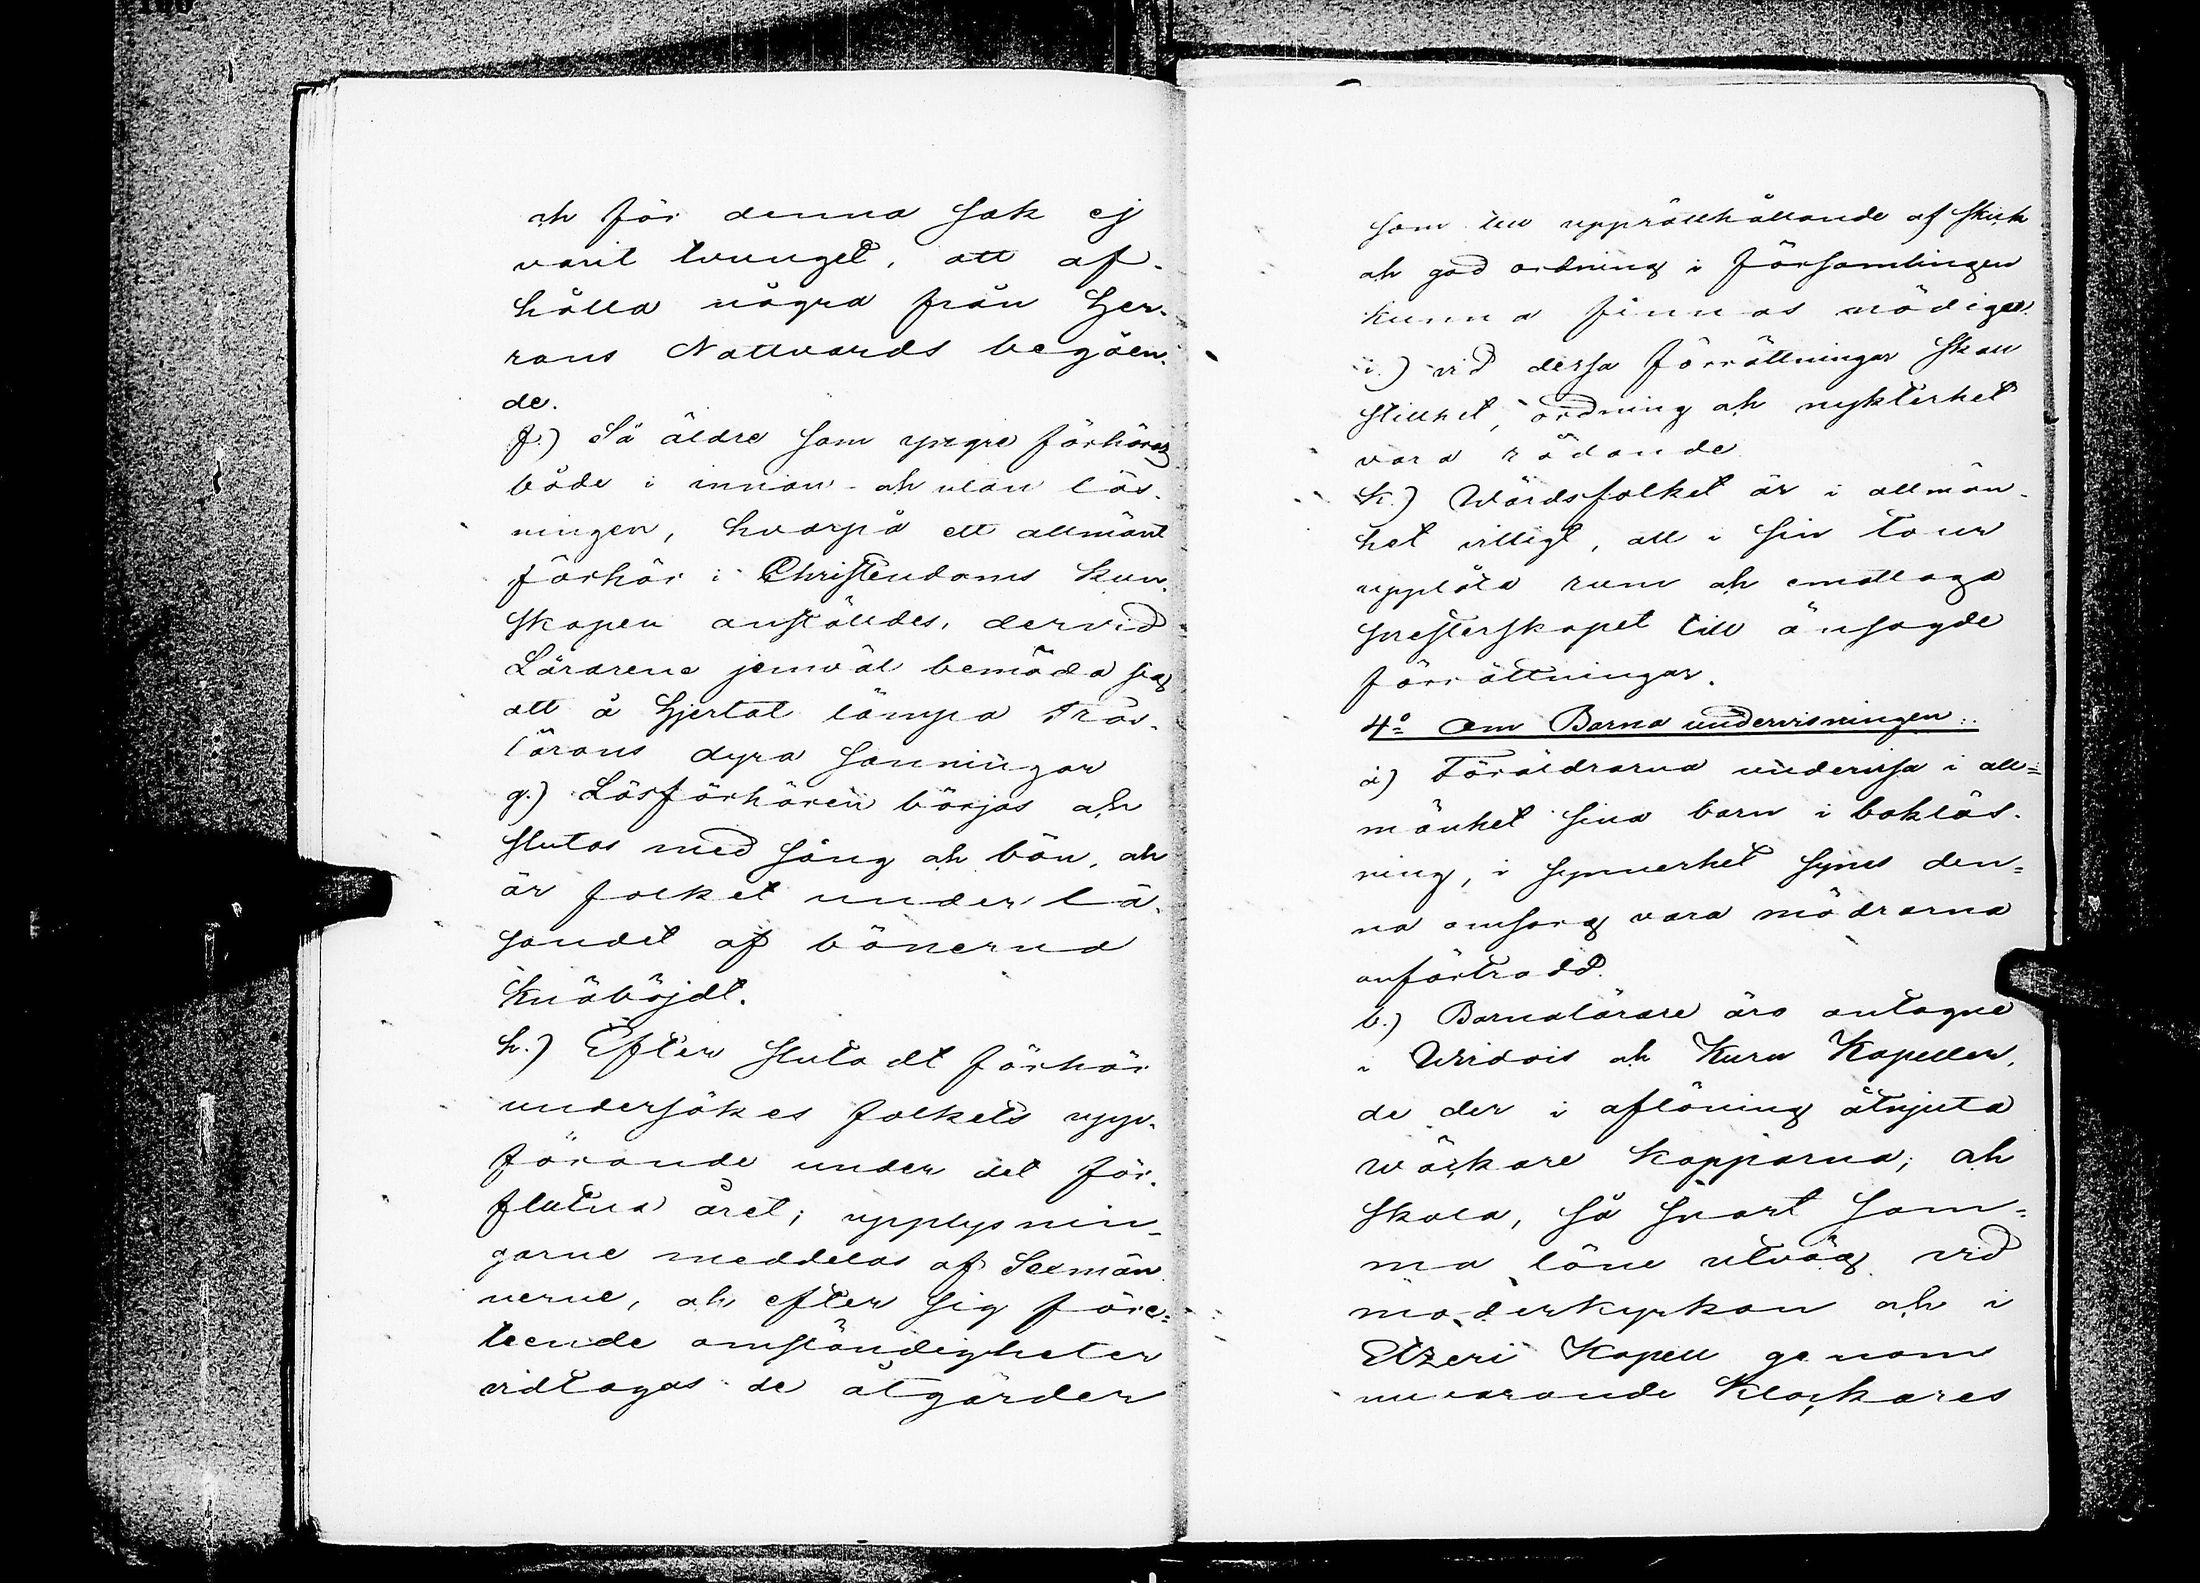 och för denna sak ej
varit tvunget, att af-
hålla några från Her-
rans Nattvards begåen-
de.
f.) Så äldre som yngre förhöras
både i innan- och utan läs-
ningen, hvarpå ett allmänt
förhör i Christendoms kun-
skapen anställdes, dervid
Lärarene jemväl bemöda sig
att å Hjertat lämpa Tros-
lärans dyra sanningar
g.) Läsförhören börjas och
slutas med sång och bön, och
är folket under lä-
sandet af bönerna
knäböjdt.
h.) Efter slutadt förhör
undersökes folkets upp-
förande under det för-
flutna året; upplysnin-
garne meddelas af Sexmän-
nerne, och efter sig före-
teende omständigheter
vidtagas de åtgärder
som till upprätthållande af skick
och god ordning i församlingen
kunna finnas nödiga.
i.) vid dessa förrättningar skall
stillhet, ordning och nykterhet
vara rådande
k.) Wärdsfolket är i allmän-
het villigt, att i sin tour
upplåta rum och emottaga
presterskapet till ånsagde
förrättningar.
4:o Om Barna undervisningen.
a) Föräldrarna undervisa i all-
mänhet sina barn i bokläs-
ning, i synnerhet synes den-
na omsorg vara mödrarna
anförtrodd.
b.) Barnalärare äro antagne
i Wirdois och Kuru Kapeller,
de der i aflöning åtnjuta
wäckare kapparna; och
skola, så snart sam-
ma löne utväg vid
moderkyrkan och i
Etzeri Kapell genom
nuvarande Klockares